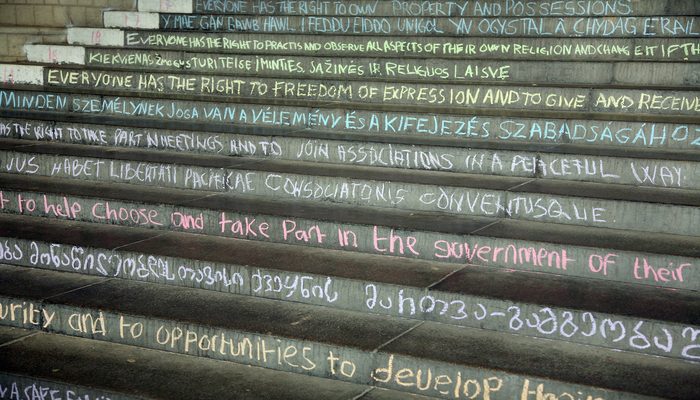 EVERYONE HAS THE RIGHT TO OWN PROPERTY AND POSSESSIONS
Y MAE GAN BAWB HAWL I FEDDU EIDDO UNIGOL YN OGYSTAL Â CHYDAG ERAILL
EVERYONE HAS THE RIGHT TO PRACTIS AND OBSERVE ALL ASPECTS OF THEIR OWN RELIGION AND CHANGE IT IF
KIEKVIENAS ŽMOGUS TURI TEISĘ Į MINTIES, SĄŽINĖS IR RELIGIJOS LAISVĘ
EVERYONE HAS THE RIGHT TO FREEDOM OF EXPRESSION AND TO GIVE AND RECEIV
MINDEN SZEMÉLYNEK JOGA VAN A VÉLEMÉNY ÉS A KIFEJEZÉS SZABADSÁGÁHOZ
HAS THE RIGHT TO TAKE PART IN MEETINGS AND TO JOIN ASSOCIATIONS IN A PEACEFUL WAY.
JUS HABET LIBERTATI PACIFICAE CONSOCIATONIS CONVENTUSQUE.
t to help choose and take part in the government of their
მონაწილეობდეს თავისი ქვეყნის მართვა-გამგეობაშ
urity and to opportunities to develop their